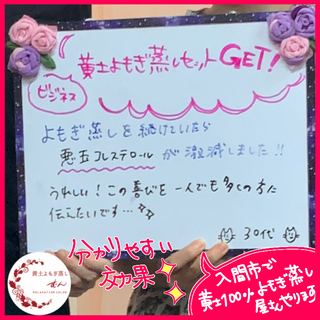 黄土よもぎ蒸しセットGET!
ビジネス
よもぎ蒸しを続けていたら
悪玉コレステロールが激減しました!!
うれしい!この喜びを一人でも多くの方に
伝えたいです…
30代
分かりやすい
効果
入間市で
黄土100%よもぎ蒸し
屋さんやります
黄土よもぎ蒸し
ぜん